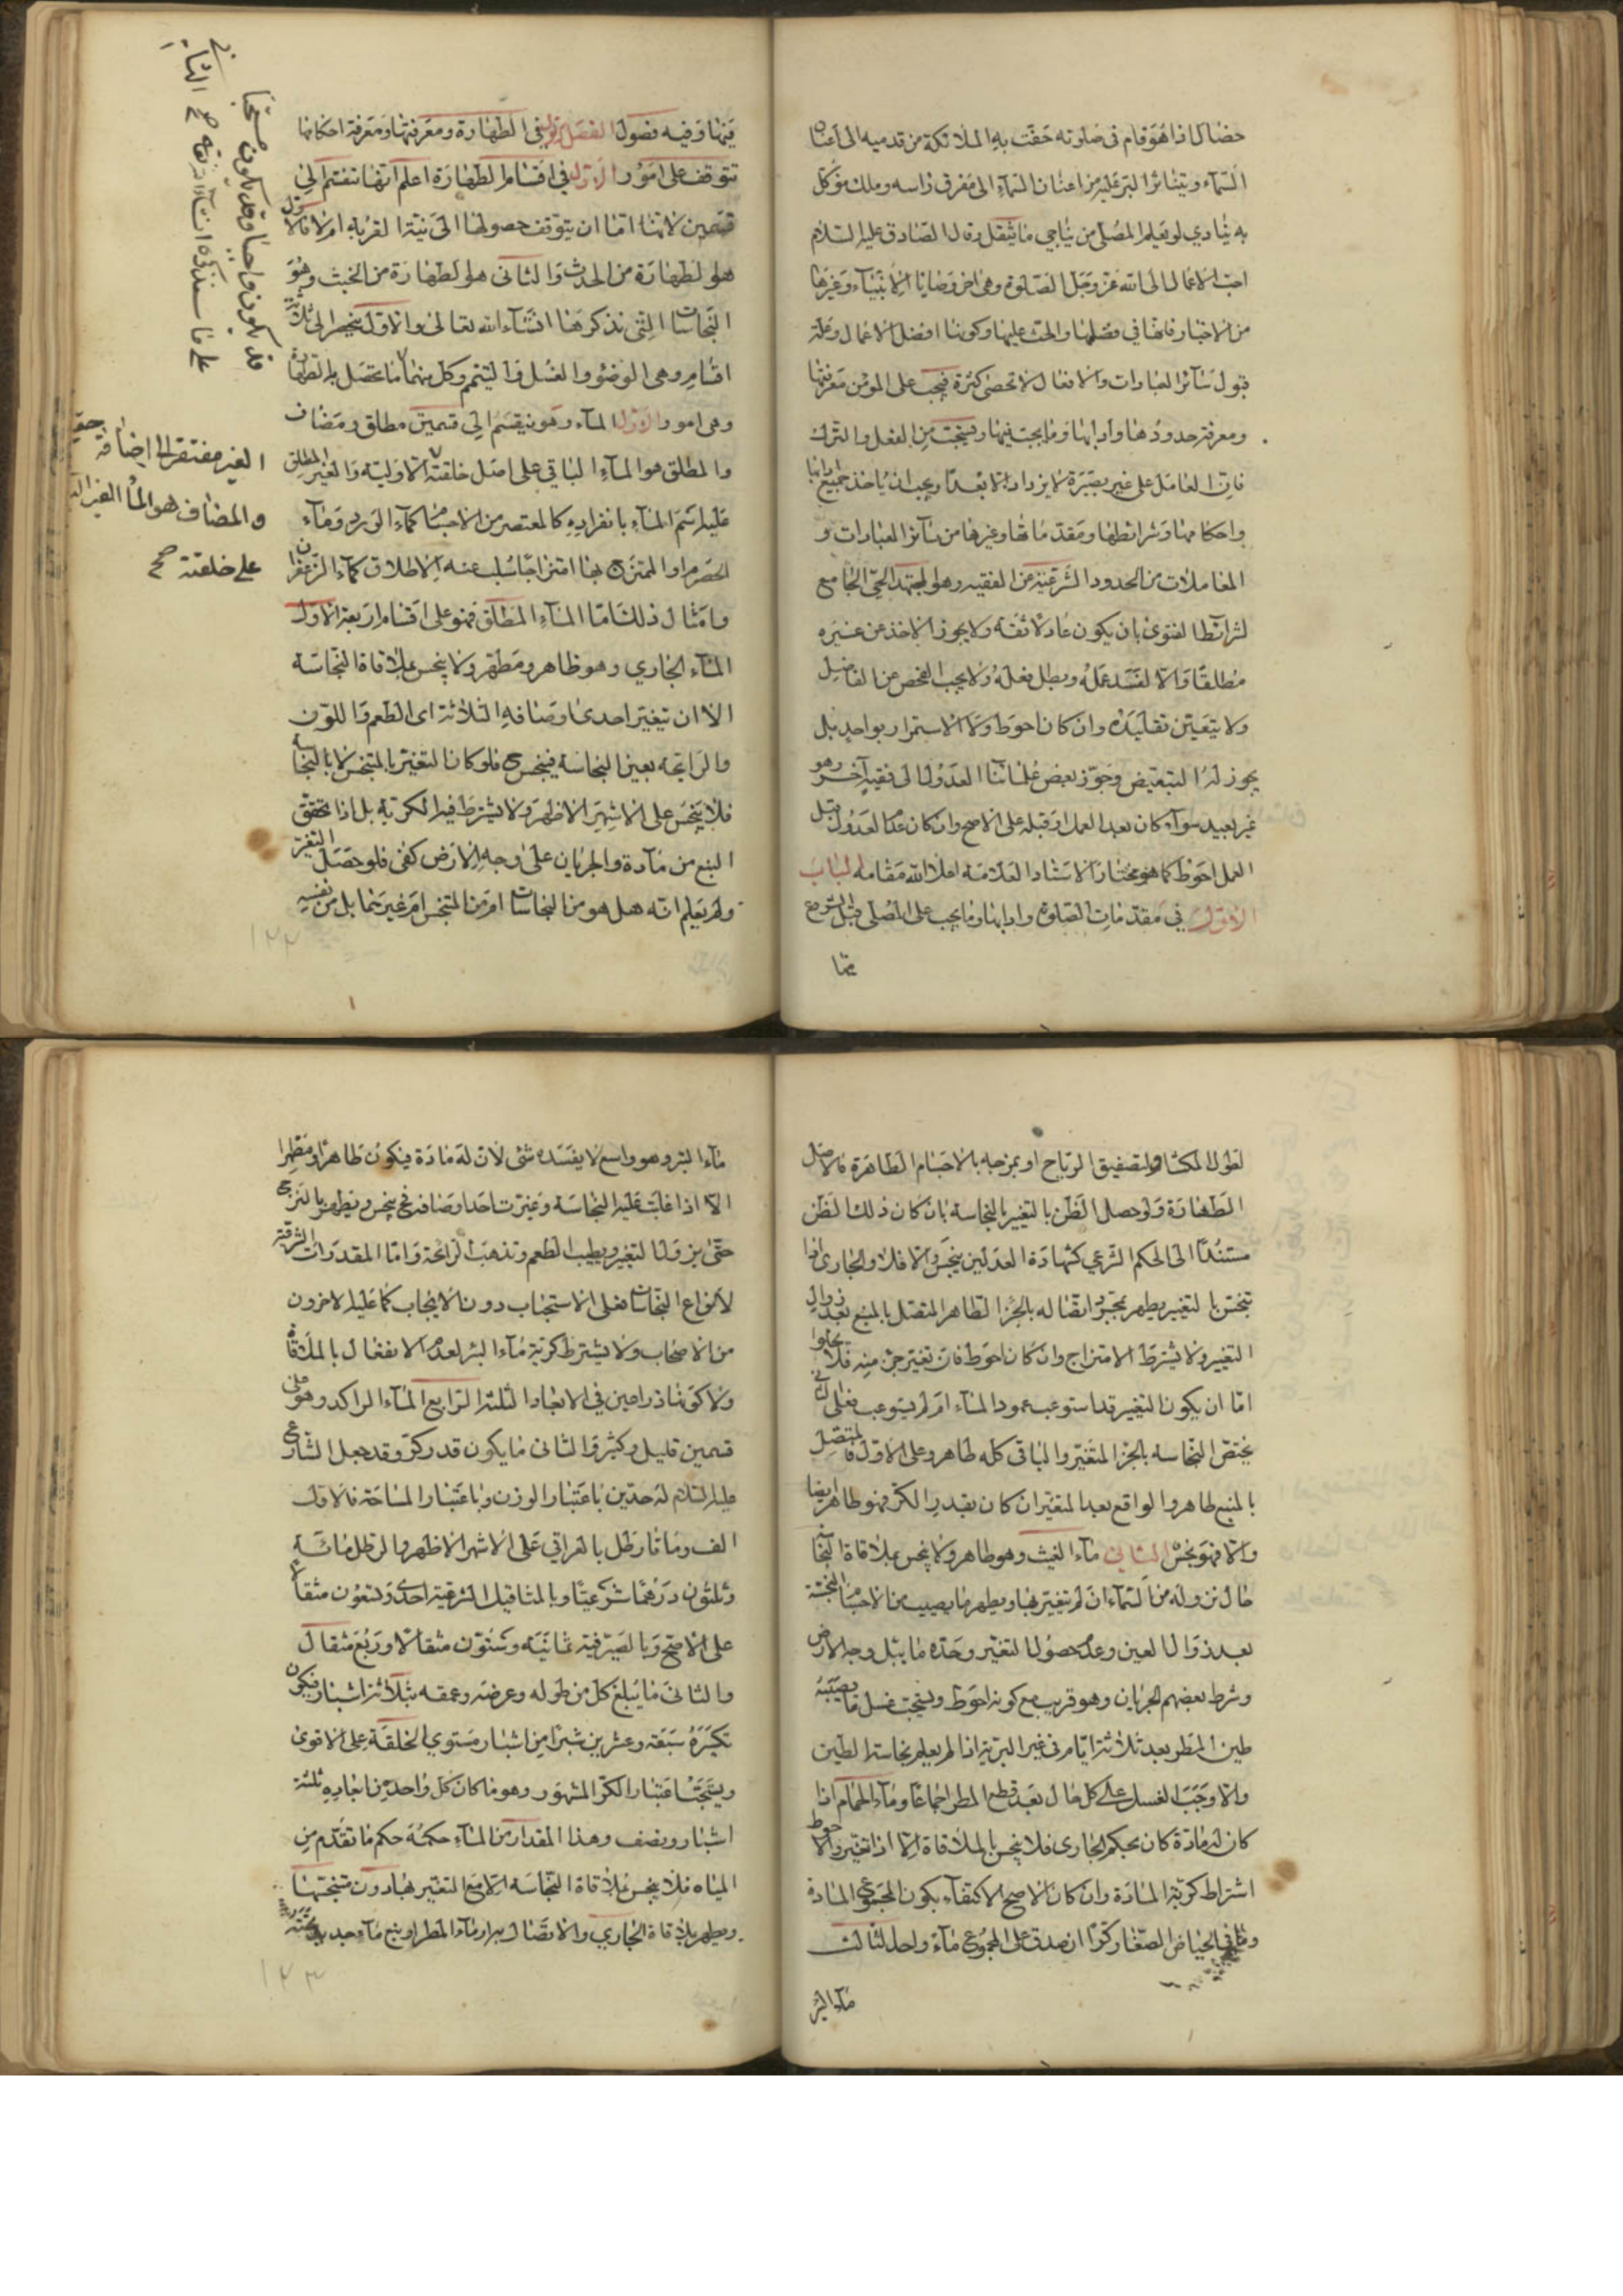 خصال اذا هو قام في صلوته حفّت به الملائكة من قدميه الى اعنان
السّماء ويتناثر البرّ عليه من اعنان السّماء الى مفرق راسه وملك موكّل
به ينادي لو يعلم المصلّي من يناجي ما انفتل وقال الصّادق عليه السّلام
احبّ الاعمال الى الله عزّ وجلّ الصّلوة وهي اخر وصايا الانبياء وغيرها
من الاخبار فانها في فضلها والحث عليها وكونها افضل الاعمال وعلّة
قبول سائر العبادات والافعال لا تحصى كثرة فيجب على المؤمن معرفتها
ومعرفة حدودها وادابها وما يجب فيها ويستحبّ من الفعل والترك
فانّ العامل على غير بصيرة لا يزداد الا بعدًا ويجب ان ياخذ جميع ادابها
واحكامها وشرائطها ومقدّماتها وغيرها من سائر العبادات و
المعاملات من الحدود الشرعيّة من الفقيه وهو المجتهد الحيّ الجامع
لشرائط الفتوى بان يكون عادلا ثقة ولا يجوز الاخذ عن غيره
مطلقًا والّا لفسد عمله وبطل فعله ولا يجب الفحص عن الفاضل
ولا يتعيّن تقليده وان كان احوط ولا الاستمرار بواحد بل
يجوز له التبعيض وجوّز بعض علمائنا العدول الى فقيه آخر وهو
غير بعيد سواء كان بعد العمل او قبله على الاصح وان كان عدم العدول قبل
العمل احوط كما هو مختار الاستاد العلّامة اعلا الله مقامه الباب
الاوّل في مقدّمات الصّلوة وادابها وما يجب على المصلّي قبل الشروع
فيها وفيه فصول الفصل الاوّل في الطّهارة ومعرفتها ومعرفة احكامها
تتوقف على امور الاوّل في اقسام الطّهارة اعلم انّها تنقسم الى
قسمين لانّها امّا ان يتوقف حصولها الى نيّة القربة ام لا فالاوّل
هو الطهارة من الحدث والثاني هو الطهارة من الخبث وهو
النّجاسات الّتي نذكرها انشاء الله تعالى والاوّل ينحصر الى ثلاثة
اقسام وهي الوضوء والغسل والتيمّم وكلّ منهما ما تحصل به الطّهارة
وهي امور الاوّل الماء وهو ينقسم الى قسمين مطلق ومضاف
والمطلق هو الماء الباقي على اصل خلقته الاوليّة والغير المطلق
عليه اسم الماء بانفراده كالمعتصر من الاجسام كماء الورد وماء
الحصرم او الممتزج بها امتزاجًا سلب عنه الاطلاق كماء الزّعفران
وامثال ذلك امّا الماء المطلق فهو على اقسام اربعة الاوّل
الماء الجاري وهو طاهر ومطهّر ولا ينجس بملاقاة النّجاسة
الا ان تغيّر احدى اوصافه الثلاثة اى الطعم واللّون
والرّايحة بعين النجاسة فينجس ح فلو كان التغيّر بالمتنجس لا بالنجاسة
فلا ينجس على الاشهر الاظهر ولا يشترط فيه الكريّة بل اذا تحقّق
النبع من مادة والجريان على وجه الارض كفى فلو حصل التغيّر
ولم يعلم انّه هل هو من النجاسات ام من المتنجس ام غيرهما بل من نفسه
قد يكون واجبا وقد يكون مستحبا
على ما سنذكره انشاء الله تعالى صح
الغير مفتقر الى اضافة
والمضاف هو الماء الغير
على خلقته صح
لطول المكث او لتصفيق الرّياح او بمزجه بالاجسام الطّاهرة فالاصل
الطّهارة ولو حصل الظّن بالتغيير بالنجاسة بان كان ذلك الظّن
مستندًا الى الحكم الشّرعي كشهادة العدلين ينجّس والّا فلا والجاري اذا
تنجّس بالتغيير يطهر بمجرّد اتّصاله بالجزء الطّاهر المتصل بالمنبع بعد زوال
التغيير ولا يشترط الامتزاج وان كان احوط فان تغيّر جزء منه فلا يخلوا
امّا ان يكون التغيير قد استوعب عمود الماء ام لم يستوعب فعلى الثاني
يختصّ النّجاسة بالجزء المتغيّر والباقي كله طاهر وعلى الاوّل فالمتّصل
بالمنبع طاهر والواقع بعد المتغيّر ان كان بقدر الكرّ فهو طاهر ايضا
والّا فهو نجس الثاني ماء الغيث وهو طاهر ولا ينجس بملاقاة النّجاسة
حال نزوله من السّماء ان لم يتغيّر بها ويطهر ما يصيب من الاجسام النجسة
بعد زوال العين وعدم حصول التغيّر وحدّه ما يبلّ وجه الارض
وشرط بعضهم الجريان وهو قريب مع كونه احوط ويستحبّ غسل ما يصيبه
طين المطر بعد ثلاثة ايّام في غير البريّة اذا لم يعلم نجاسة الطين
والّا وجب الغسل على كل حال بعد قطع المطر اجماعًا وماء الحمّام اذا
كان له مادّة كان بحكم الجاري فلا ينجس بالملاقاة الّا اذا تغيّر والاحوط
اشتراط كريّة المادّة وان كان الاصح الاكتفاء بكون المجموع المادة
وما في الحياض الصّغار كرًّا ان صدق على المجموع ماء واحد الثالث
ماء البئر وهو واسع لا يفسده شئ لانّ له مادّة فيكون طاهرا ومطهّرا
الّا اذا غلبت عليه النّجاسة وغيّرت احد اوصافه فح ينجس ويطهر بالنّزح
حتّى يزول التغيّر ويطيب الطّعم وتذهب الرّائحة وامّا المقدّرات الشرعيّة
لانواع النّجاسات فعلى الاستحباب دون الايجاب كما عليه الاخرون
من الاصحاب ولا يشترط كريّة ماء البئر لعدم الانفعال بالملاقاة
ولا كونها ذراعين في الابعاد الثلثة الرّابع الماء الراكد وهو على
قسمين قليل وكثير والثاني ما يكون قدر كرّ وقد جعل الشارع
عليه السّلام له حدّين باعتبار الوزن وباعتبار المساحة فالاوّل
الف ومائتا رطل بالعراقي على الاشهر الاظهر والرطل مائة
وثلثون درهمًا شرعيًّا وبالمثاقيل الشرعيّة احدى وتسعون مثقالا
على الاصح وبالصّيرفيّة ثمانية وستّون مثقالا وربع مثقال
والثاني ما يبلغ كل من طوله وعرضه وعمقه بثلاثة اشبار فيكون
تكسّره سبعة وعشرين شبرًا من اشبار مستوي الخلقة على الاقوى
ويستحبّ اعتبار الكرّ المشهور وهو ما كان كلّ واحد من ابعاده ثلثة
اشبار ونصف وهذا المقدار من الماء حكمه حكم ما تقدّم من
المياه فلا ينجس بملاقاة النّجاسة الّا مع التغيّر بها دون متنجّسها
ويطهر بملاقاة الجاري والاتّصال به او ماء المطر او نبع ماء جديد
ماء البئر
١٢٢
١٢٣